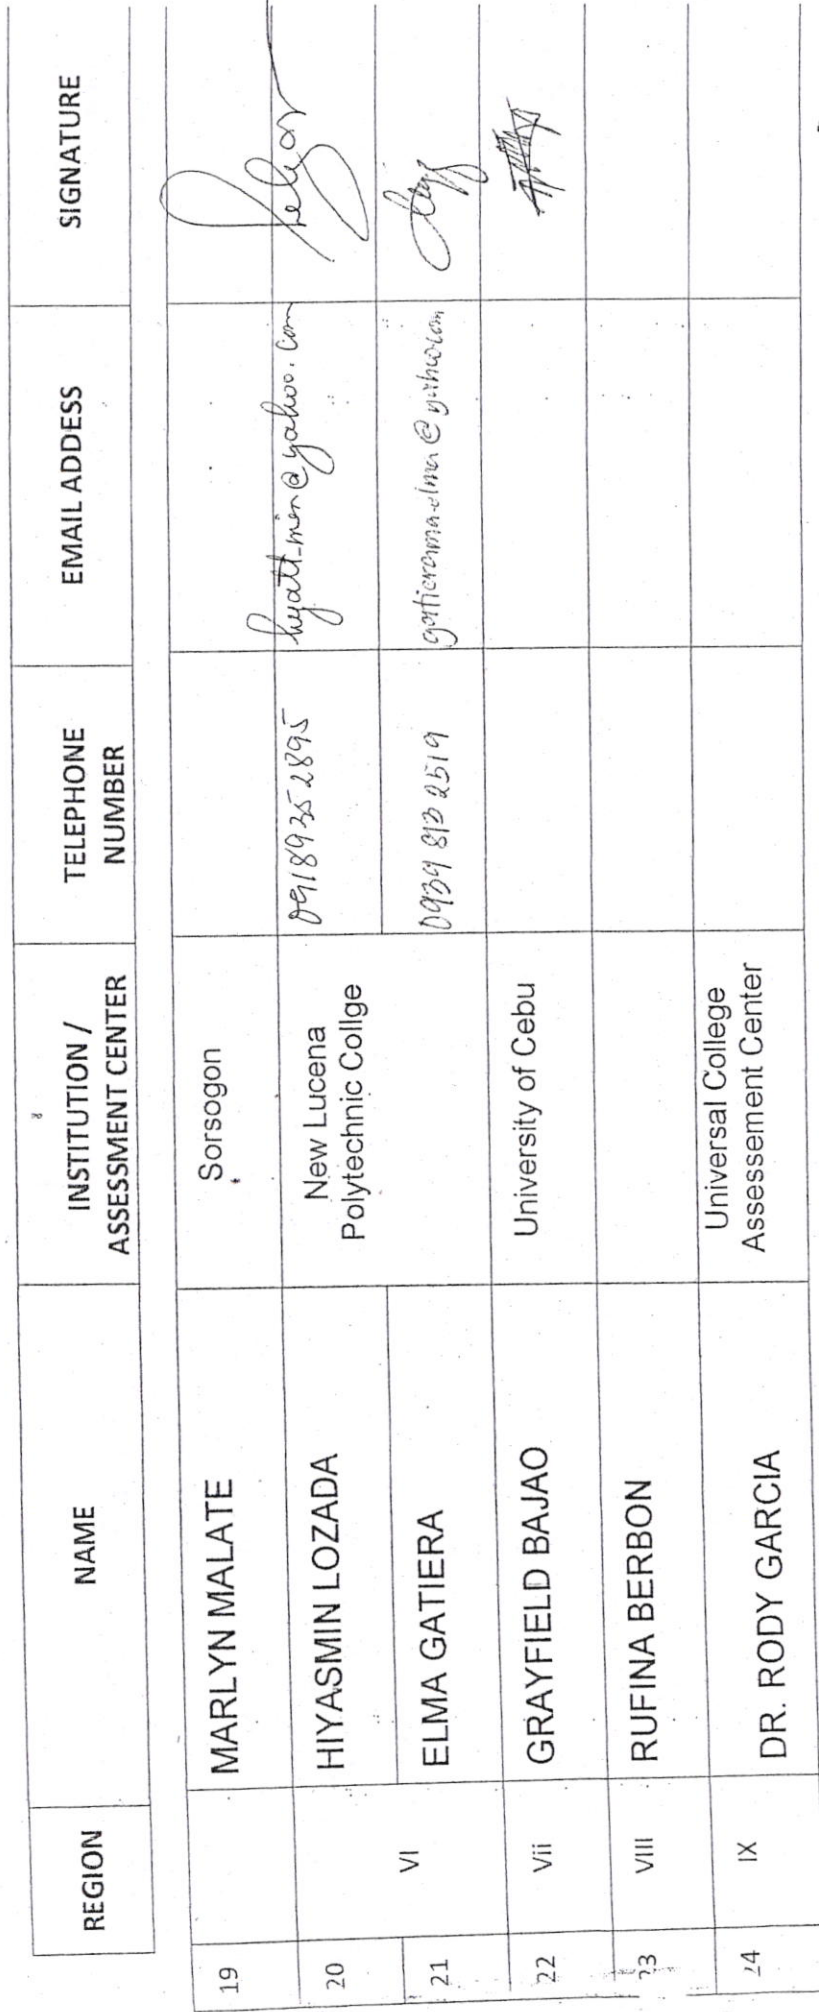 REGION NAME INSTITUTION / ASSESSMENT CENTER TELEPHONE NUMBER EMAIL ADDESS SIGNATURE
19 MARLYN MALATE Sorsogon
20 VI HIYASMIN LOZADA New Lucena Polytechnic Collge 09189352895 hyatt_min@yahoo.com
21 ELMA GATIERA 0939 813 2519
22 Vii GRAYFIELD BAJAO University of Cebu
23 VIII RUFINA BERBON
24 IX DR. RODY GARCIA Universal College Assessement Center